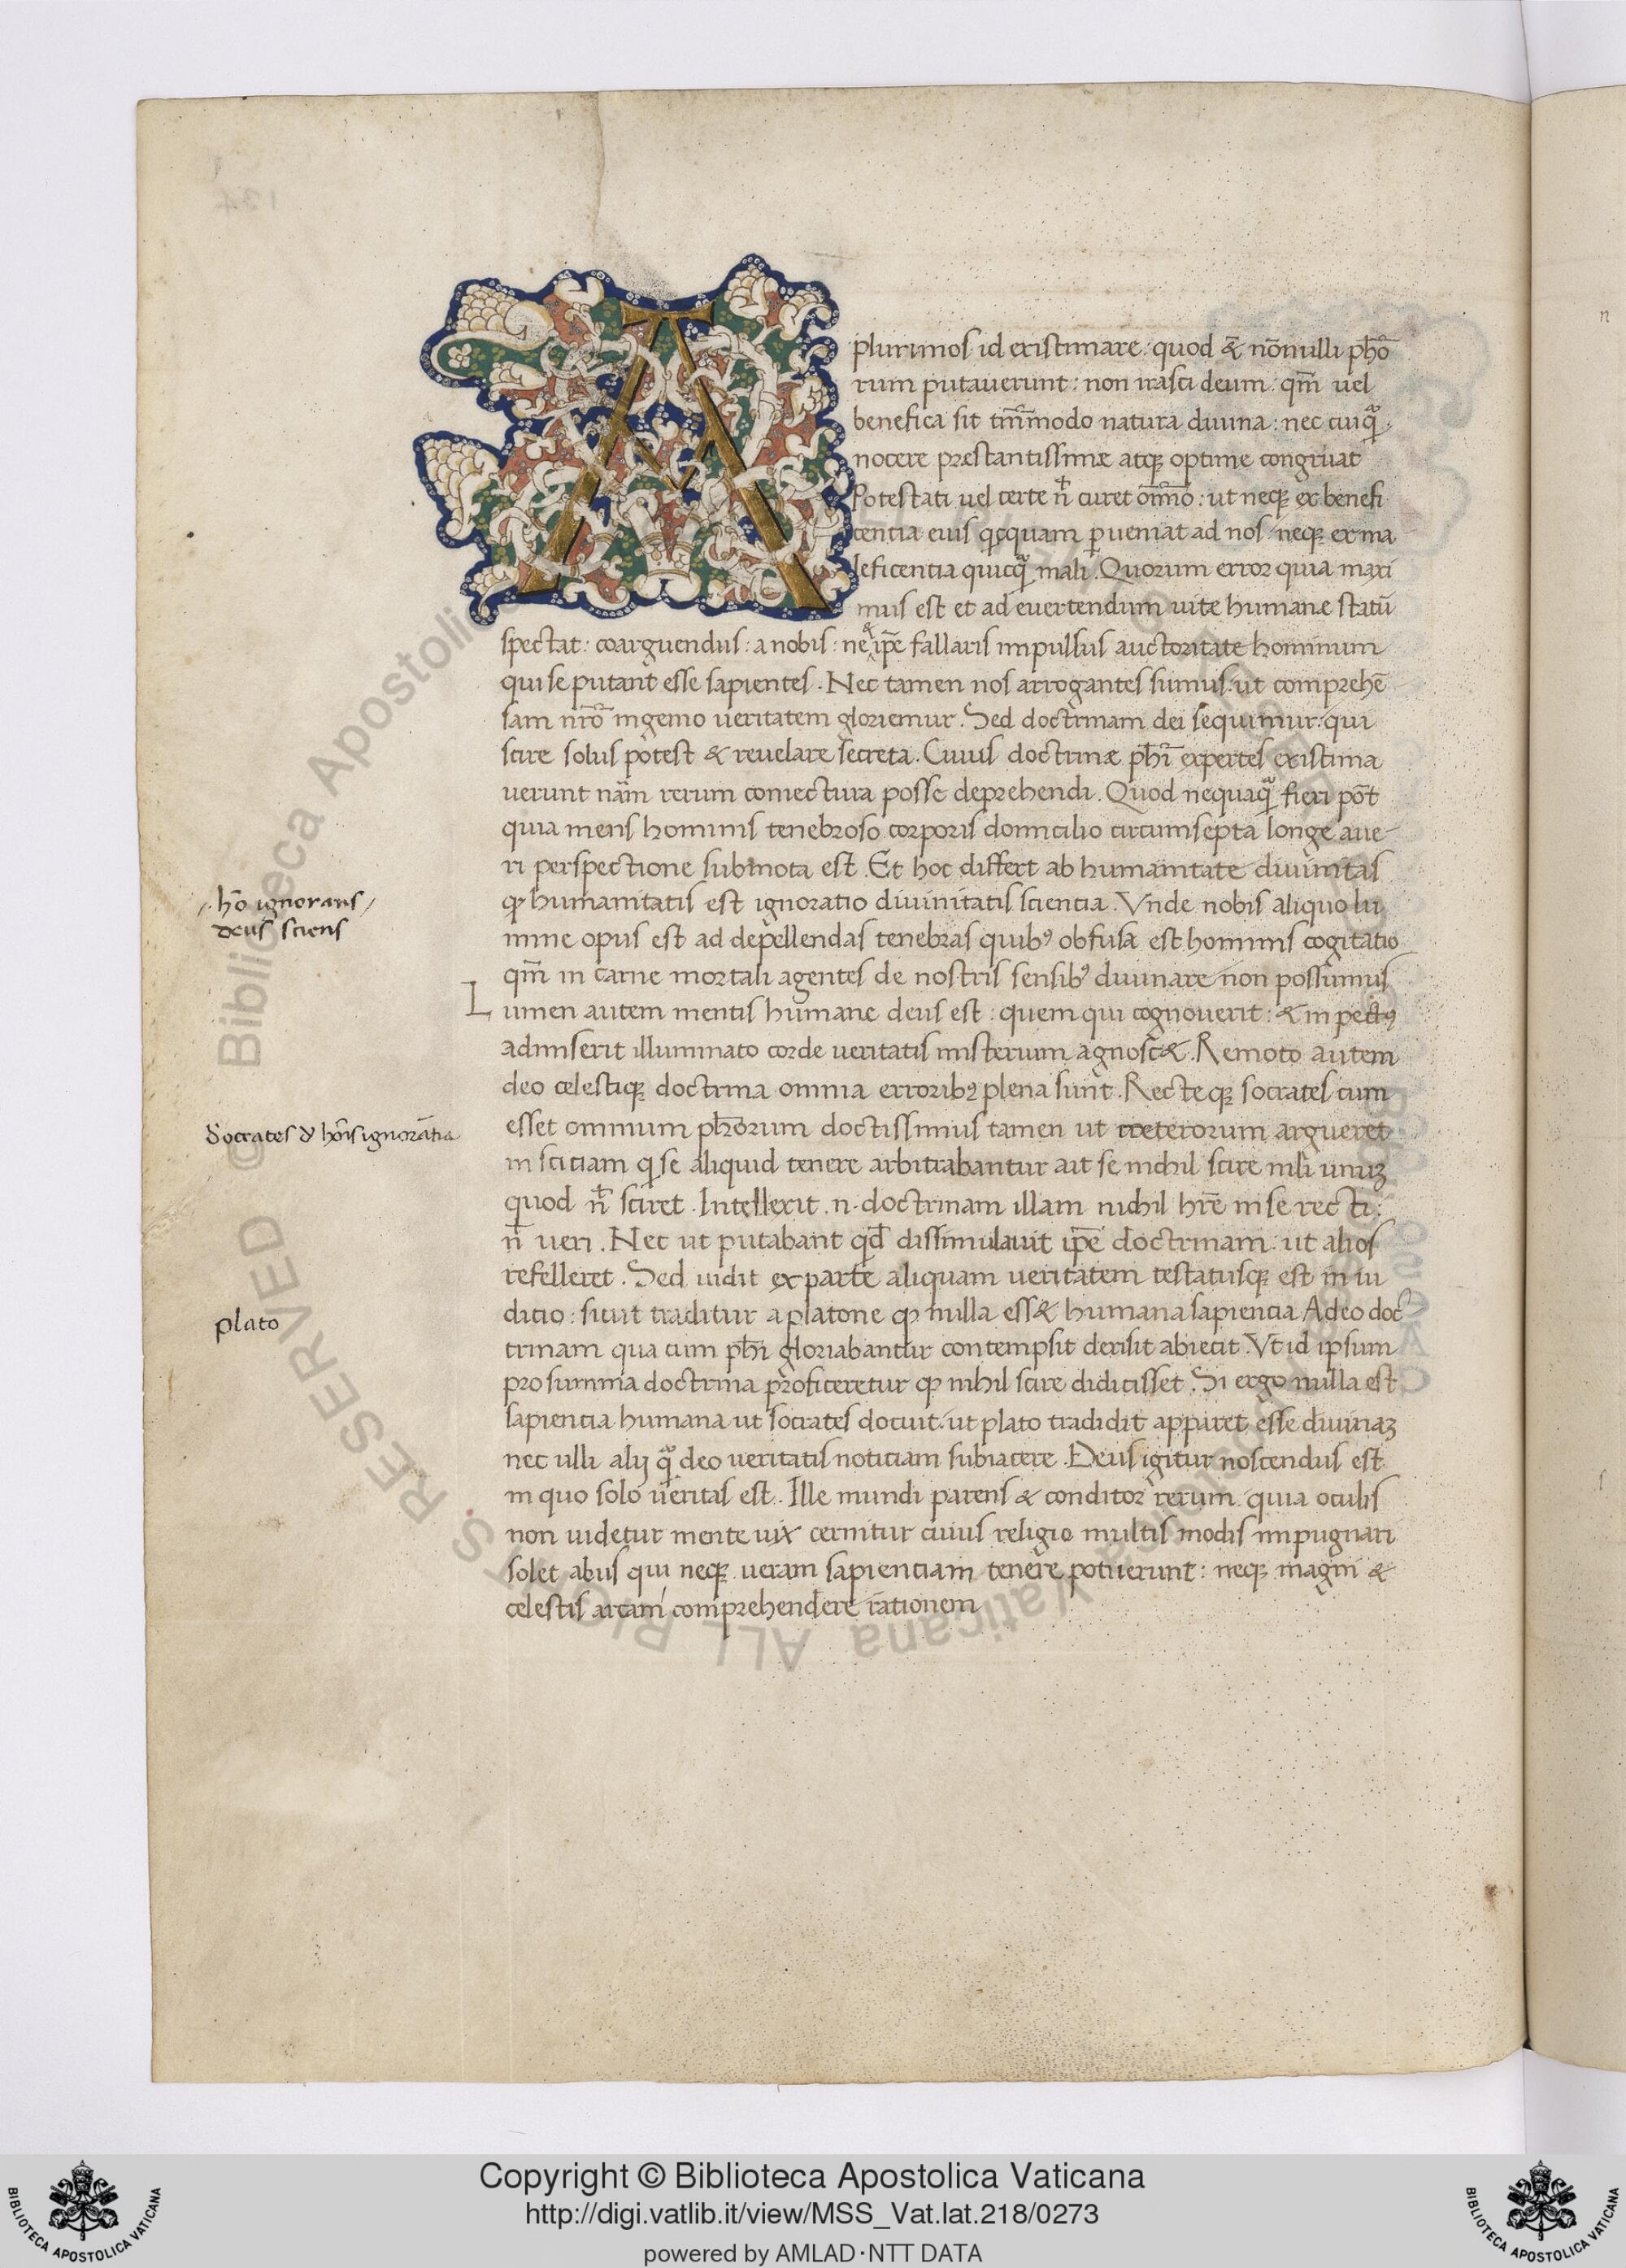 A
plurimos id existimare: quod & nōnulli ph̄o
rum putauerunt: non irasci deum: qm̄ uel
benefica sit tm̄modo natura diuina: nec cuiq̄
nocere præstantissimæ atq; optime congruat
Potestati uel certe n̄ curet om̄o: ut neq; ex benefi
centia eius qcquam p̱ueniat ad nos: neq; ex ma
leficentia quicq̄ mali. Quorum error quia maxi
mus est et ad euertendum uite humanæ statū
spectat: coarguendus: a nobis: ne & ip̄e fallaris impulsus auctoritate hominum
qui se putant esse sapientes. Nec tamen nos arrogantes sumus: ut comprehē
sam nr̄o ingenio ueritatem gloriemur. Sed doctrinam dei sequimur: qui
scire solus potest & reuelare secreta. Cuius doctrinæ ph̄i expertes existima
uerunt nām rerum coniectura posse deprehendi. Quod nequaq̄ fieri pōt
quia mens hominis tenebroso corporis domicilio circumsepta longe aue-
ri perspectione submota est. Et hoc differt ab humanitate diuinitas
ꝙ humanitatis est ignoratio diuinitatis scientia. Vnde nobis aliquo lu
mine opus est ad depellendas tenebras quibꝰ obfusā est hominis cogitatio
qm̄ in carne mortali agentes de nostris sensibꝰ diuinare non possumus
Lumen autem mentis humane deus est: quem qui cognouerit: & in pectꝰ
admiserit illuminato corde ueritatis misterium agnosc&. Remoto autem
deo celestiq; doctrina omnia erroribꝰ plena sunt. Recteq; socrates cum
esset omnium ph̄orum doctissimus tamen ut ceterorum argueret
in scitiam q se aliquid tenere arbitrabantur ait se nichil scire nisi unuꝫ
quod n̄ sciret. Intellexit .n. doctrinam illam nichil hr̄e in se recti:
n̄ ueri. Nec ut putabant qd̄ dissimulauit ip̄e doctrinam: ut alios
refelleret. Sed uidit ex parte aliquam ueritatem testatusq; est in iu
ditio: sicut traditur a platone ꝙ nulla ess& humana sapiencia Adeo doc
trinam qua cum ph̄i gloriabantur contempsit derisit abiecit. Vt id ipsum
pro summa doctrina profiteretur ꝙ nihil scire didicisset. Si ergo nulla est
sapiencia humana ut socrates docuit: ut plato tradidit apparet esse diuinaꝫ
nec ulli alij q̄ deo ueritatis noticiam subiacere. Deus igitur noscendus est
in quo solo ueritas est. Ille mundi parens & conditor rerum quia oculis
non uidetur mente uix cernitur cuius religio multis modis impugnari
solet abiis qui neq; ueram sapienciam tenere potuerunt: neq; magni &
celestis arcani comprehendere rationem
hō ignorans
deus sciens
Socrates ꝺ hoīs ignorātia
plato
© Biblioteca Apostolica Vaticana ALL RIGHTS RESERVED
Copyright © Biblioteca Apostolica Vaticana
http://digi.vatlib.it/view/MSS_Vat.lat.218/0273
powered by AMLAD·NTT DATA
BIBLIOTECA APOSTOLICA VATICANA
BIBLIOTECA APOSTOLICA VATICANA